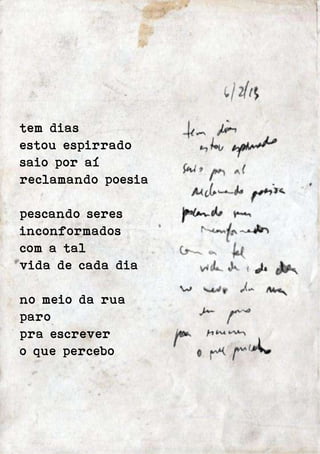 tem dias
estou espirrado
saio por aí
reclamando poesia
pescando seres
inconformados
com a tal
vida de cada dia
no meio da rua
paro
pra escrever
o que percebo
6/2/13
tem dias
estou espirrado
saio por aí
reclamando poesia
pescando seres
inconformados
com a tal
vida de cada dia
no meio da rua
eu paro
para escrever
o que percebo